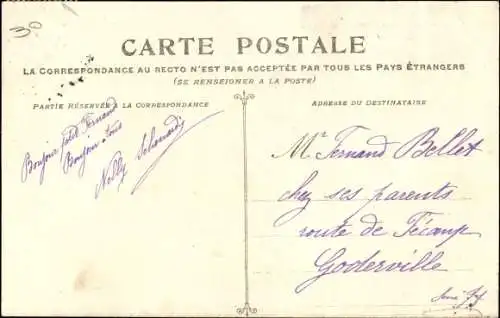 30
CARTE POSTALE
LA CORRESPONDANCE AU RECTO N'EST PAS ACCEPTÉE PAR TOUS LES PAYS ÉTRANGERS
(SE RENSEIGNER A LA POSTE)
PARTIE RÉSERVÉE A LA CORRESPONDANCE
Bonjour petit Fernand
Bonjour tous
Nelly
ADRESSE DU DESTINATAIRE
Mr Fernand Bellet
chez ses parents
route de Fécamp
Goderville